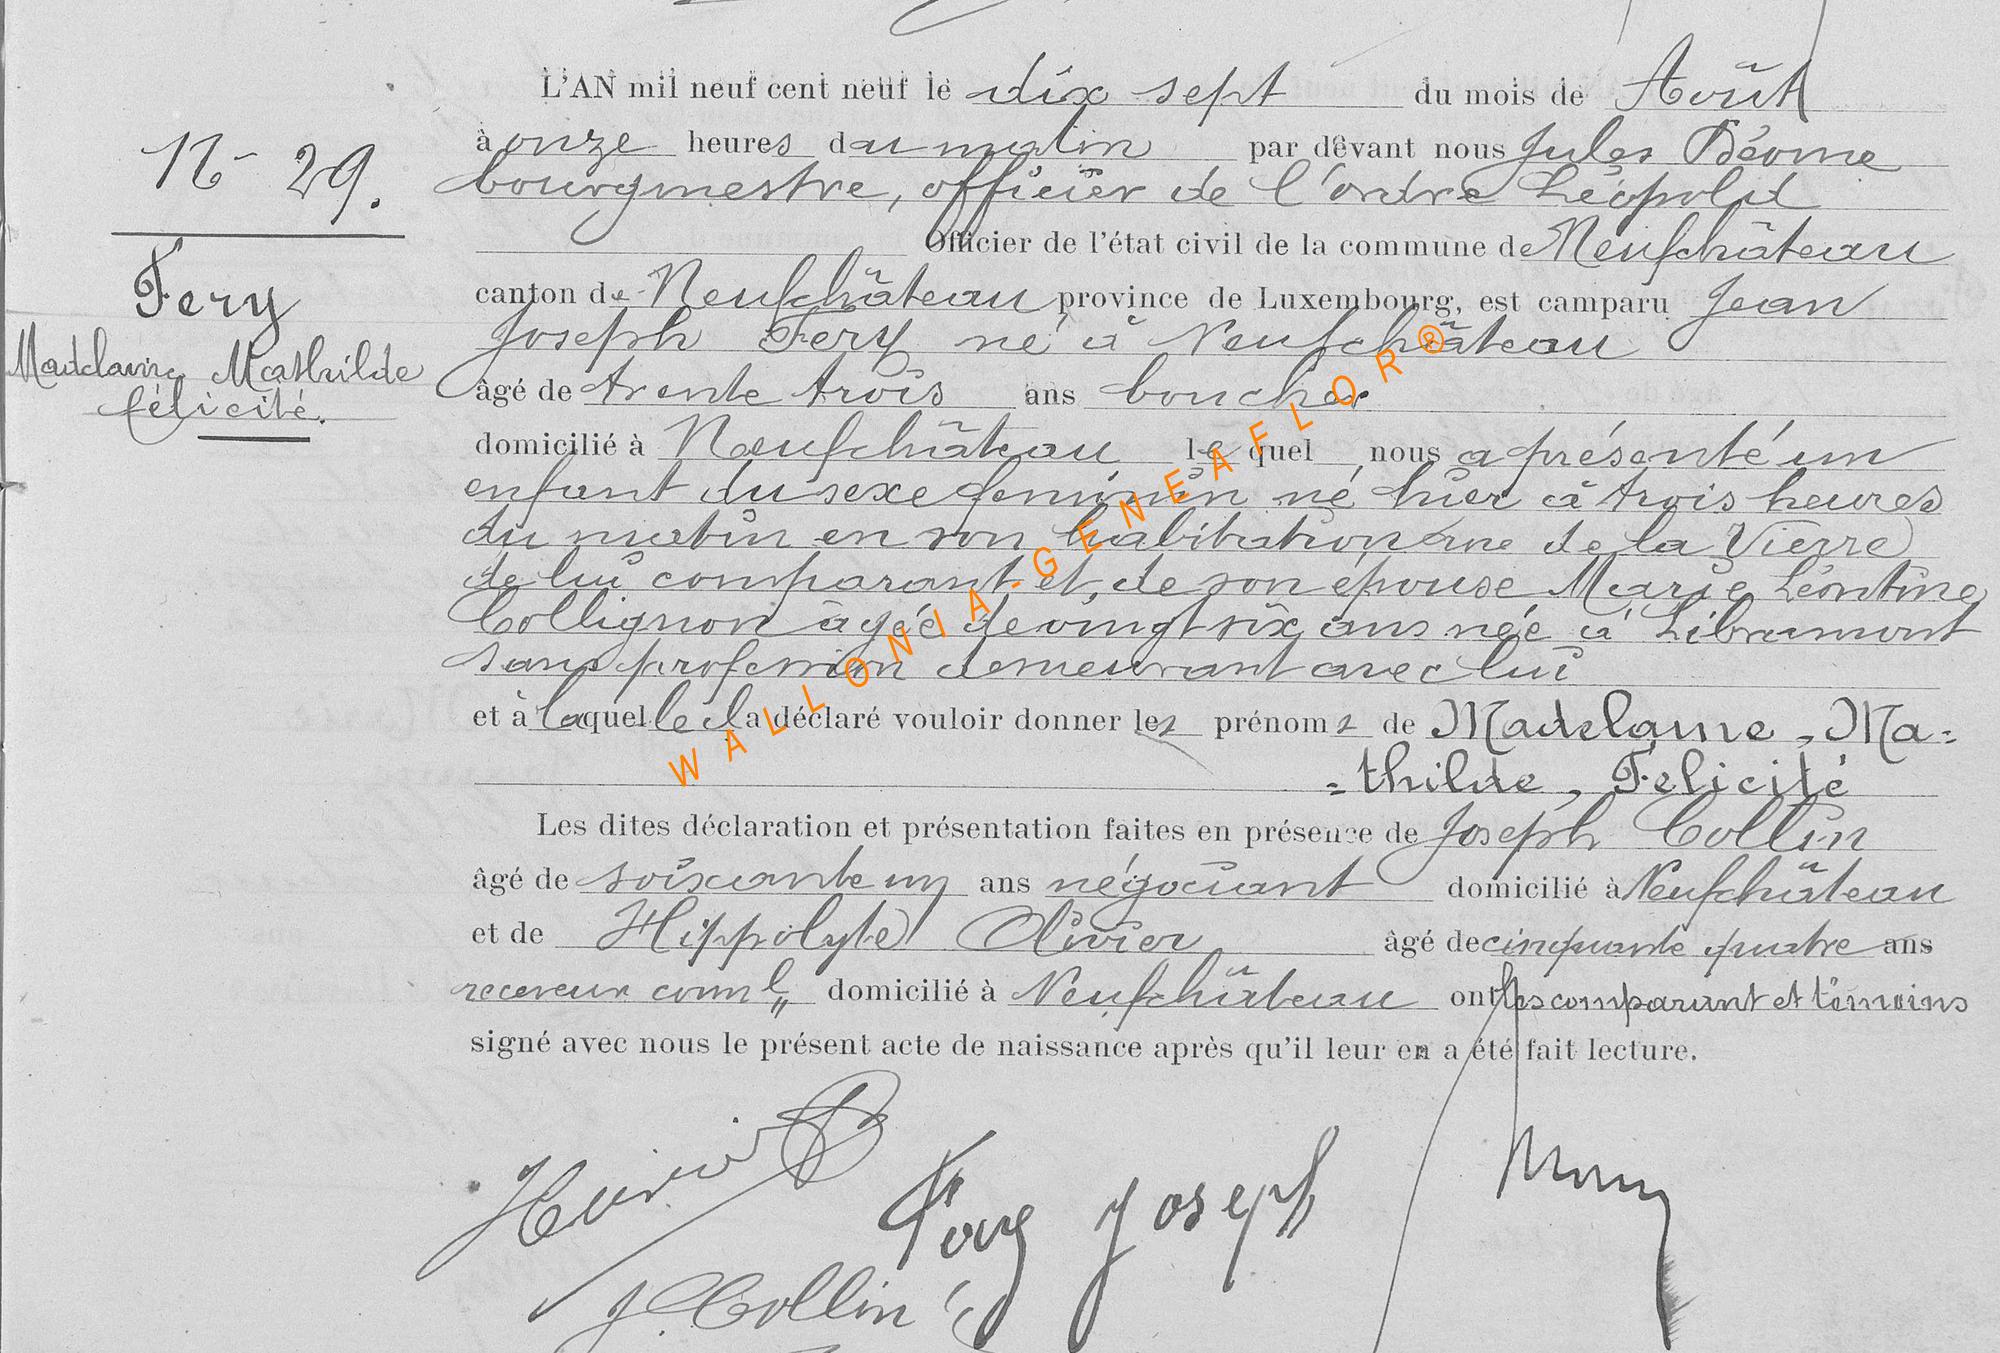 L'AN mil neuf cent neuf le dix sept du mois de Août
à onze heures du matin par devant nous Jules Déome
bourgmestre, officier de l'ordre Léopold
Officier de l'état civil de la commune de Neufchâteau
canton de Neufchâteau province de Luxembourg, est camparu Jean
Joseph Fery né à Neufchâteau
âgé de trente trois ans boucher
domicilié à Neufchâteau lequel nous a présenté un
enfant du sexe feminin né hier à trois heures
du matin en son habitation rue de la Vierre
de lui comparant et, de son épouse Marie Léontine
Collignon âgée de vingt six ans née à Libramont
sans profession demeurant avec lui
et à laquelle il a déclaré vouloir donner les prénoms de Madelaine, Ma=
=thilde, Felicité
Les dites déclaration et présentation faites en présence de Joseph Collin
âgé de soixante un ans négociant domicilié à Neufchâteau
et de Hippolyte Olivier âgé de cinquante quatre ans
receveur coml domicilié à Neufchâteau ont les comparant et témoins
signé avec nous le présent acte de naissance après qu'il leur en a été fait lecture.
Fery Joseph
J. Collin
N- 29.
Fery
Madelaine Mathilde
félicité.
WALLONIA-GENEAFLOR®